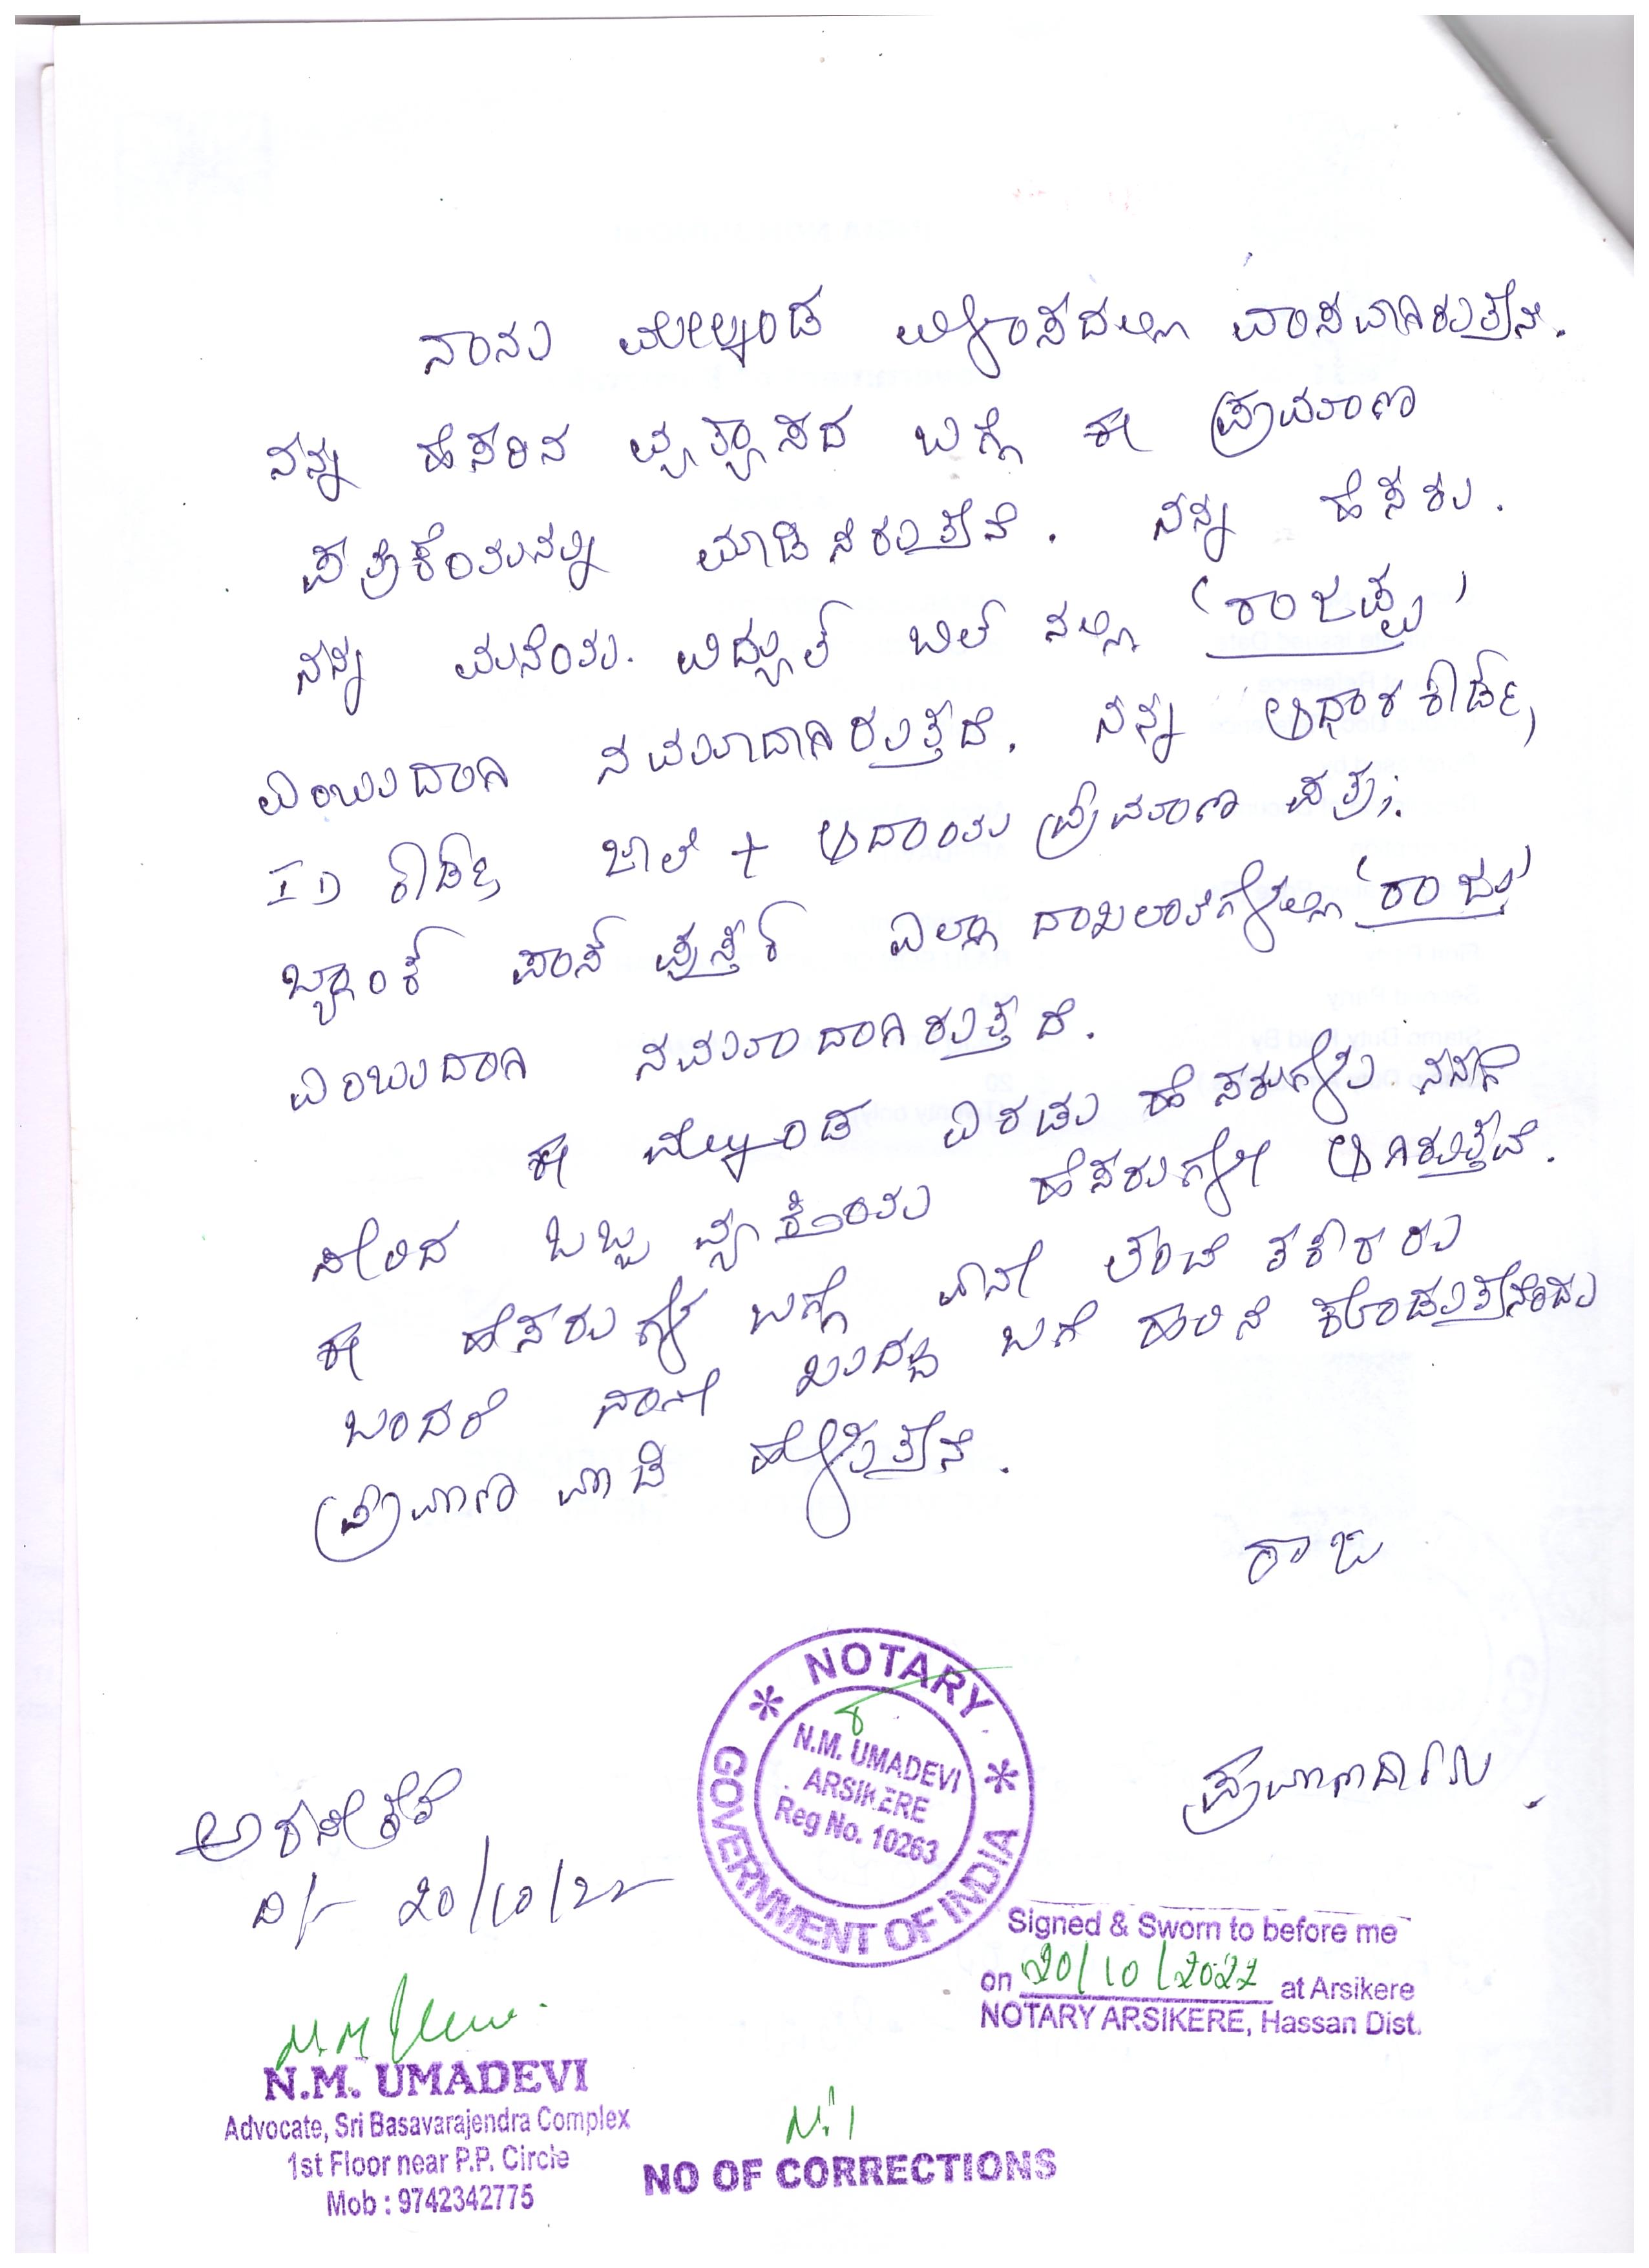 ನಾನು ಮೇಲ್ಕಂಡ ವಿಳಾಸದಲ್ಲಿ ವಾಸವಾಗಿರುತ್ತೇನೆ.
ನನ್ನ ಹೆಸರಿನ ವ್ಯತ್ಯಾಸದ ಬಗ್ಗೆ ಈ ಪ್ರಮಾಣ
ಪತ್ರಿಕೆಯನ್ನು ಮಾಡಿಸಿರುತ್ತೇನೆ. ನನ್ನ ಹೆಸರು.
ನನ್ನ ಮನೆಯ. ವಿದ್ಯುತ್ ಬಿಲ್ ನಲ್ಲಿ 'ರಾಜಪ್ಪ'
ಎಂಬುದಾಗಿ ನಮೂದಾಗಿರುತ್ತದೆ. ನನ್ನ ಆಧಾರ ಕಾರ್ಡ್,
ID ಕಾರ್ಡ್ ಜಾತಿ + ಆದಾಯ ಪ್ರಮಾಣ ಪತ್ರ;
ಬ್ಯಾಂಕ್ ಪಾಸ್ ಪುಸ್ತಕ್ ಎಲ್ಲಾ ದಾಖಲಾತಿಗಳಲ್ಲಿ 'ರಾಜು'
ಎಂಬುದಾಗಿ ನಮೂದಾಗಿರುತ್ತದೆ.
ಈ ಮೇಲ್ಕಂಡ ಎರಡು ಹೆಸರುಗಳು ನನಗೆ
ಸೇರಿದ ಒಬ್ಬ ವ್ಯಕ್ತಿಯ ಹೆಸರುಗಳೇ ಆಗಿರುತ್ತವೆ.
ಈ ಹೆಸರುಗಳ ಬಗ್ಗೆ ಏನೇ ತಂಟೆ ತಕರಾರು
ಬಂದರೆ ನಾನೇ ಖುದ್ದು ಬಗೆ ಹರಿಸಿ ಕೊಡುತ್ತೇನೆಂದು
ಪ್ರಮಾಣ ಮಾಡಿ ಹೇಳುತ್ತೇನೆ.
ರಾಜು
NOTARY
N.M. UMADEVI
ARSIKERE
Reg No. 10263
GOVERNMENT OF INDIA
ಪ್ರಮಾಣದಾರರು.
ಅರಸೀಕೆರೆ
D/- 20/10/22
Signed & Sworn to before me
on 20/10/2022 at Arsikere
NOTARY ARSIKERE, Hassan Dist.
N.M. UMADEVI
Advocate, Sri Basavarajendra Complex
1st Floor near P.P. Circle
Mob : 9742342775
NO OF CORRECTIONS